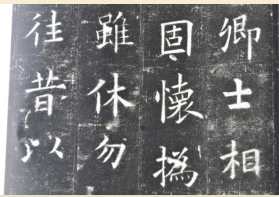 卿士相
固懷撝
雖休勿
往昔以